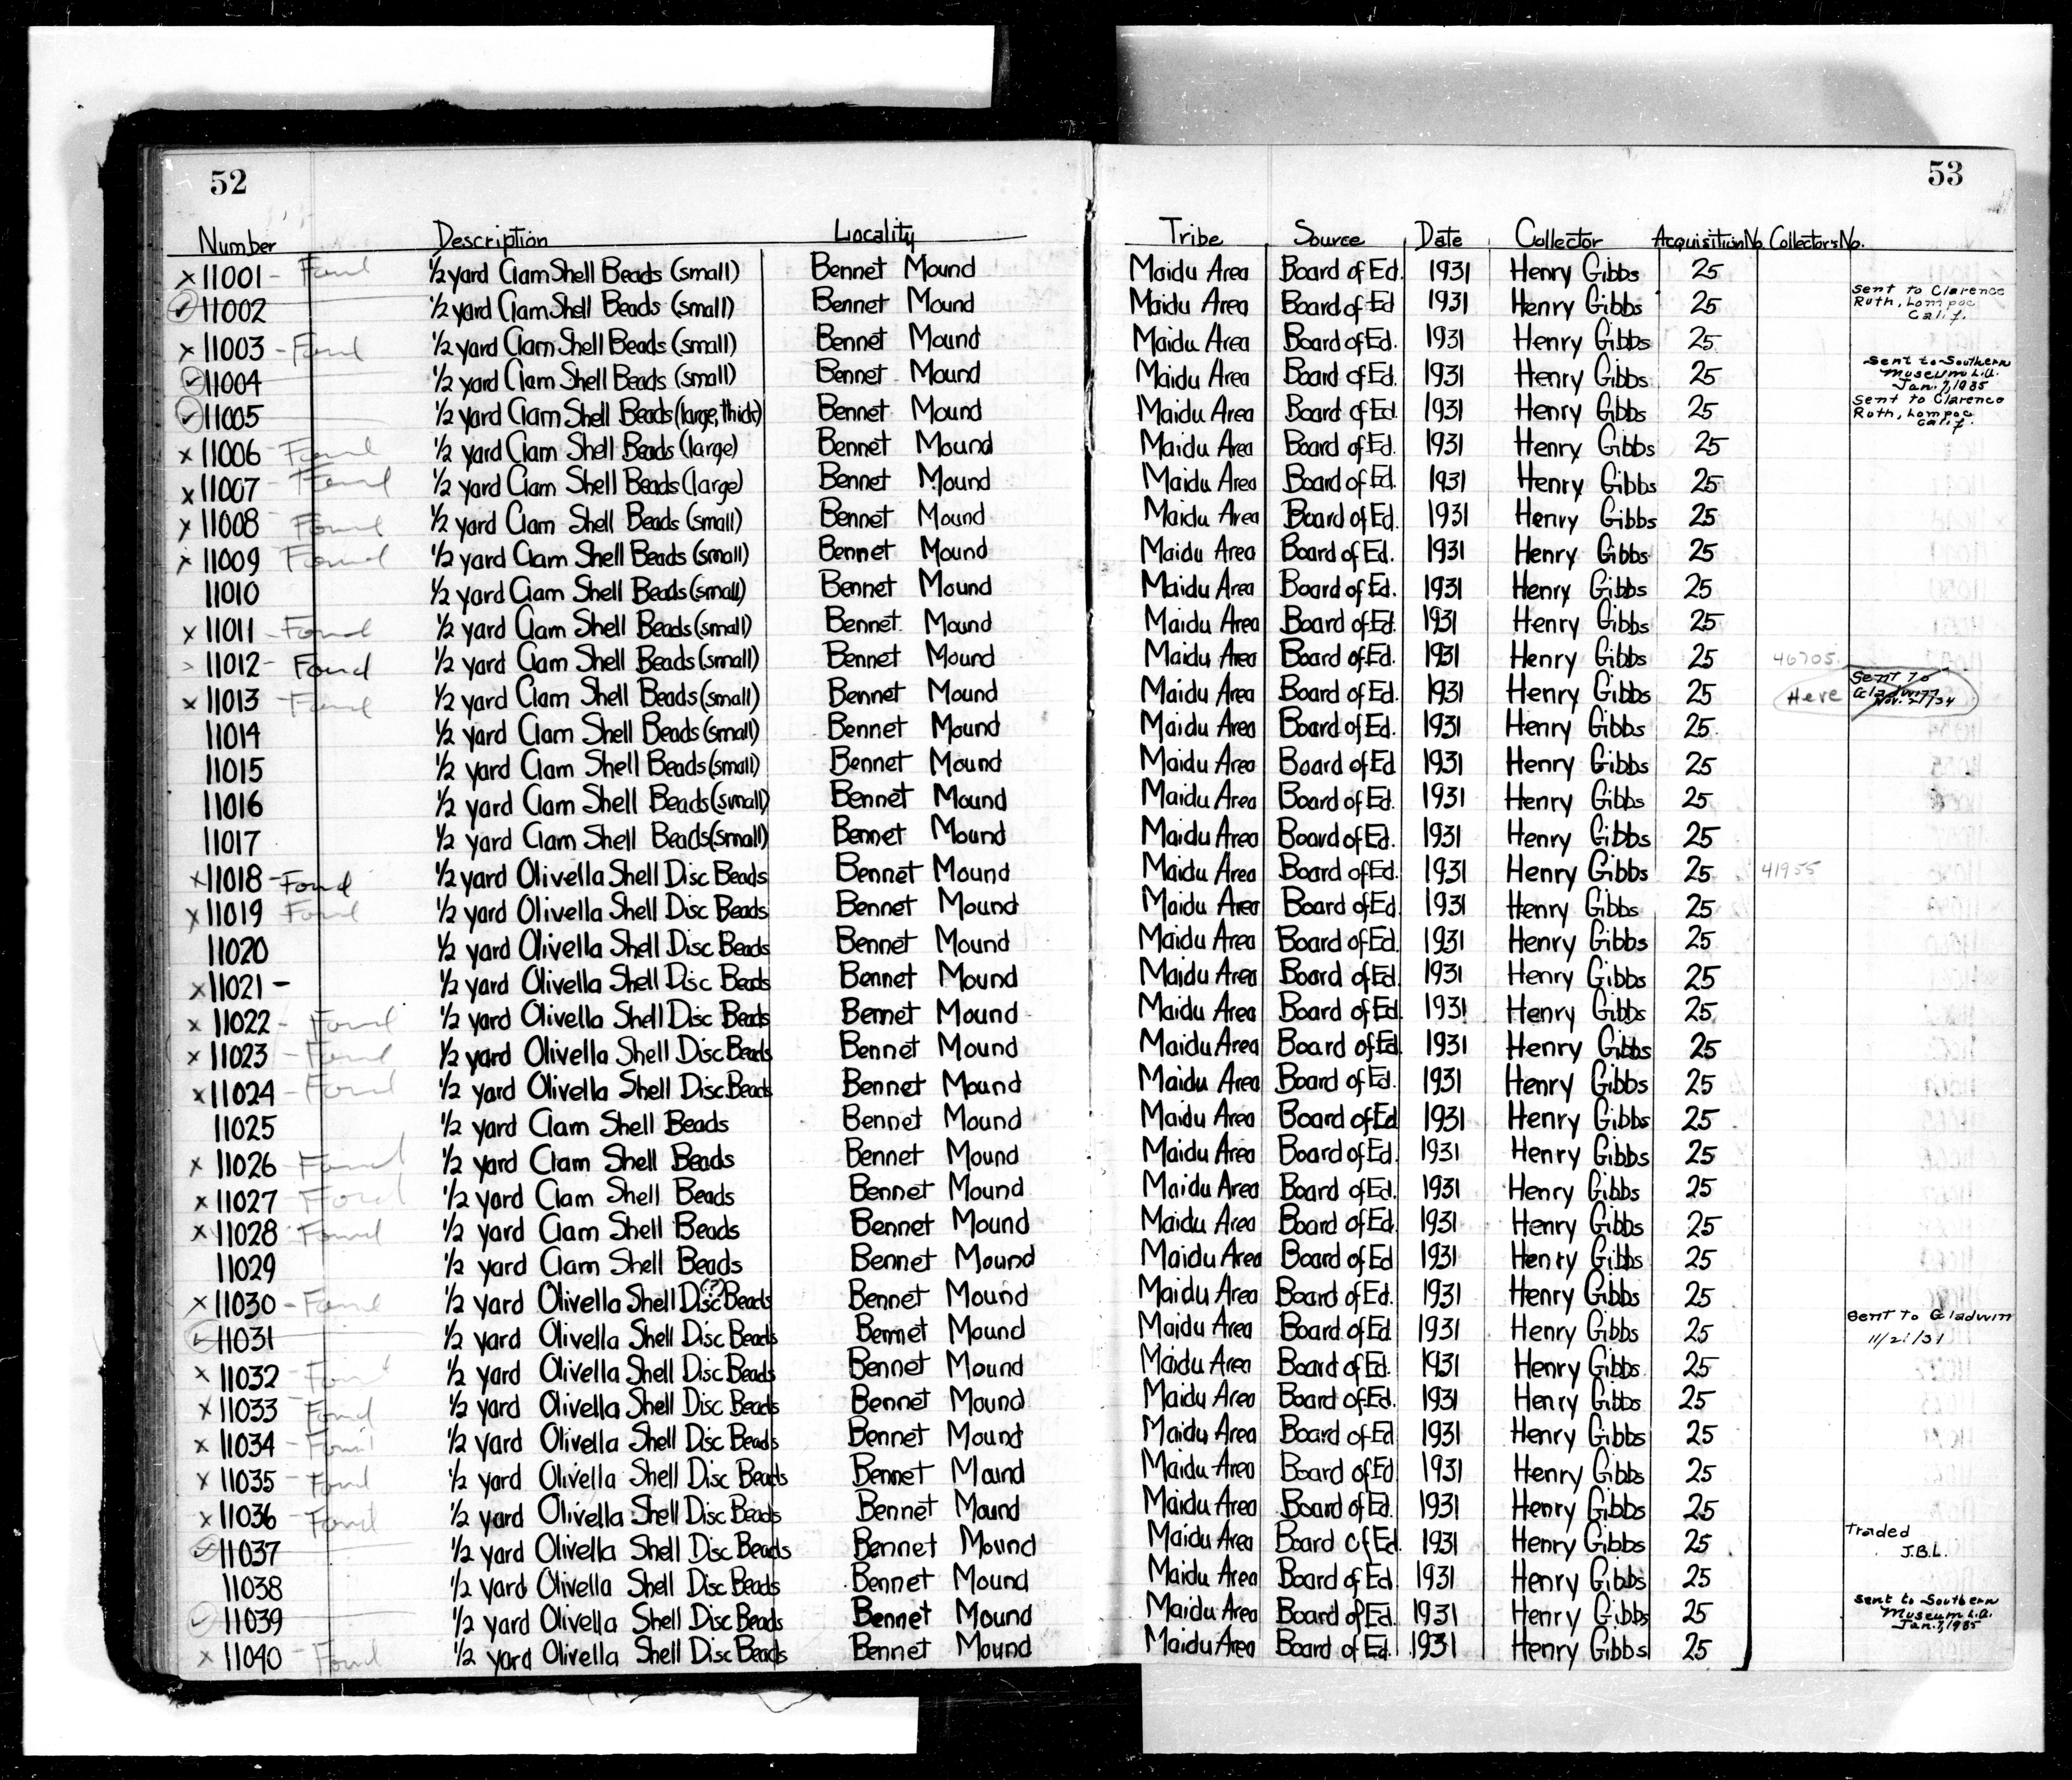 52
53
Number Description Locality Tribe Source Date Collector Acquisition No. Collector's No.
x 11001 - Found ½ yard Clam Shell Beads (small) Bennet Mound Maidu Area Board of Ed. 1931 Henry Gibbs 25
✓ 11002 ½ yard Clam Shell Beads (small) Bennet Mound Maidu Area Board of Ed 1931 Henry Gibbs 25 sent to Clarence Ruth, Lompoc Calif.
x 11003 - Found ½ yard Clam Shell Beads (small) Bennet Mound Maidu Area Board of Ed. 1931 Henry Gibbs 25
✓ 11004 ½ yard Clam Shell Beads (small) Bennet Mound Maidu Area Board of Ed. 1931 Henry Gibbs 25 sent to Southern Museum L.A. Jan. 7, 1935
✓ 11005 ½ yard Clam Shell Beads (large, thick) Bennet Mound Maidu Area Board of Ed. 1931 Henry Gibbs 25 sent to Clarence Ruth, Lompoc Calif.
x 11006 - Found ½ yard Clam Shell Beads (large) Bennet Mound Maidu Area Board of Ed. 1931 Henry Gibbs 25
x 11007 - Found ½ yard Clam Shell Beads (large) Bennet Mound Maidu Area Board of Ed. 1931 Henry Gibbs 25
x 11008 Found ½ yard Clam Shell Beads (small) Bennet Mound Maidu Area Board of Ed. 1931 Henry Gibbs 25
x 11009 Found ½ yard Clam Shell Beads (small) Bennet Mound Maidu Area Board of Ed. 1931 Henry Gibbs 25
11010 ½ yard Clam Shell Beads (small) Bennet Mound Maidu Area Board of Ed. 1931 Henry Gibbs 25
x 11011 - Found ½ yard Clam Shell Beads (small) Bennet Mound Maidu Area Board of Ed. 1931 Henry Gibbs 25
11012 - Found ½ yard Clam Shell Beads (small) Bennet Mound Maidu Area Board of Ed. 1931 Henry Gibbs 25 46705
x 11013 - Found ½ yard Clam Shell Beads (small) Bennet Mound Maidu Area Board of Ed. 1931 Henry Gibbs 25 Here Sent to Gladwin Nov. 21/34
11014 ½ yard Clam Shell Beads (small) Bennet Mound Maidu Area Board of Ed. 1931 Henry Gibbs 25
11015 ½ yard Clam Shell Beads (small) Bennet Mound Maidu Area Board of Ed 1931 Henry Gibbs 25
11016 ½ yard Clam Shell Beads (small) Bennet Mound Maidu Area Board of Ed. 1931 Henry Gibbs 25
11017 ½ yard Clam Shell Beads (small) Bennet Mound Maidu Area Board of Ed. 1931 Henry Gibbs 25
x 11018 - Found ½ yard Olivella Shell Disc Beads Bennet Mound Maidu Area Board of Ed. 1931 Henry Gibbs 25 41955
x 11019 Found ½ yard Olivella Shell Disc Beads Bennet Mound Maidu Area Board of Ed. 1931 Henry Gibbs 25
11020 ½ yard Olivella Shell Disc Beads Bennet Mound Maidu Area Board of Ed. 1931 Henry Gibbs 25
x 11021 - ½ yard Olivella Shell Disc Beads Bennet Mound Maidu Area Board of Ed. 1931 Henry Gibbs 25
x 11022 - Found ½ yard Olivella Shell Disc Beads Bennet Mound Maidu Area Board of Ed 1931 Henry Gibbs 25
x 11023 - Found ½ yard Olivella Shell Disc Beads Bennet Mound Maidu Area Board of Ed. 1931 Henry Gibbs 25
x 11024 - Found ½ yard Olivella Shell Disc Beads Bennet Mound Maidu Area Board of Ed. 1931 Henry Gibbs 25
11025 ½ yard Clam Shell Beads Bennet Mound Maidu Area Board of Ed 1931 Henry Gibbs 25
x 11026 - Found ½ yard Clam Shell Beads Bennet Mound Maidu Area Board of Ed. 1931 Henry Gibbs 25
x 11027 - Found ½ yard Clam Shell Beads Bennet Mound Maidu Area Board of Ed. 1931 Henry Gibbs 25
x 11028 - Found ½ yard Clam Shell Beads Bennet Mound Maidu Area Board of Ed. 1931 Henry Gibbs 25
11029 ½ yard Clam Shell Beads Bennet Mound Maidu Area Board of Ed 1931 Henry Gibbs 25
x 11030 - Found ½ yard Olivella Shell Disc (?) Beads Bennet Mound Maidu Area Board of Ed. 1931 Henry Gibbs 25
✓ 11031 ½ yard Olivella Shell Disc Beads Bennet Mound Maidu Area Board of Ed 1931 Henry Gibbs 25 sent to Gladwin 11/21/31
x 11032 - Found ½ yard Olivella Shell Disc Beads Bennet Mound Maidu Area Board of Ed. 1931 Henry Gibbs 25
x 11033 Found ½ yard Olivella Shell Disc Beads Bennet Mound Maidu Area Board of Ed. 1931 Henry Gibbs 25
x 11034 - Found ½ yard Olivella Shell Disc Beads Bennet Mound Maidu Area Board of Ed 1931 Henry Gibbs 25
x 11035 - Found ½ yard Olivella Shell Disc Beads Bennet Mound Maidu Area Board of Ed 1931 Henry Gibbs 25
x 11036 - Found ½ yard Olivella Shell Disc Beads Bennet Mound Maidu Area Board of Ed. 1931 Henry Gibbs 25
✓ 11037 ½ yard Olivella Shell Disc Beads Bennet Mound Maidu Area Board of Ed. 1931 Henry Gibbs 25 Traded J.B.L.
11038 ½ yard Olivella Shell Disc Beads Bennet Mound Maidu Area Board of Ed. 1931 Henry Gibbs 25
✓ 11039 ½ yard Olivella Shell Disc Beads Bennet Mound Maidu Area Board of Ed. 1931 Henry Gibbs 25 sent to Southern Museum L.A. Jan. 7, 1935
x 11040 - Found ½ yard Olivella Shell Disc Beads Bennet Mound Maidu Area Board of Ed. 1931 Henry Gibbs 25